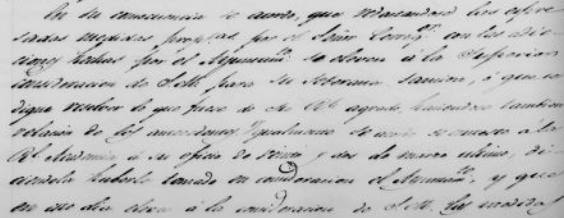 En su consecuencia se acordó, que redactandose las espre-
sadas medidas prop.tas por el Señor Correg.or con las adic-
ciones hechas por el Ayuntam.to se eleven á la Superior
consideracion de S.M. para su soberana sancion, ó que se
digne resolver lo que fuere de su R.l agrado, haciendose tambien
relacion de los anteriores. Igualmente se acordó se conteste á la
R.l Academia á su oficio de veinte y dos de marzo ultimo, di-
ciendola haberlo tomado en consideracion el Ayuntam.to, y que
en ese dia eleva á la consideracion de S.M. las medidas